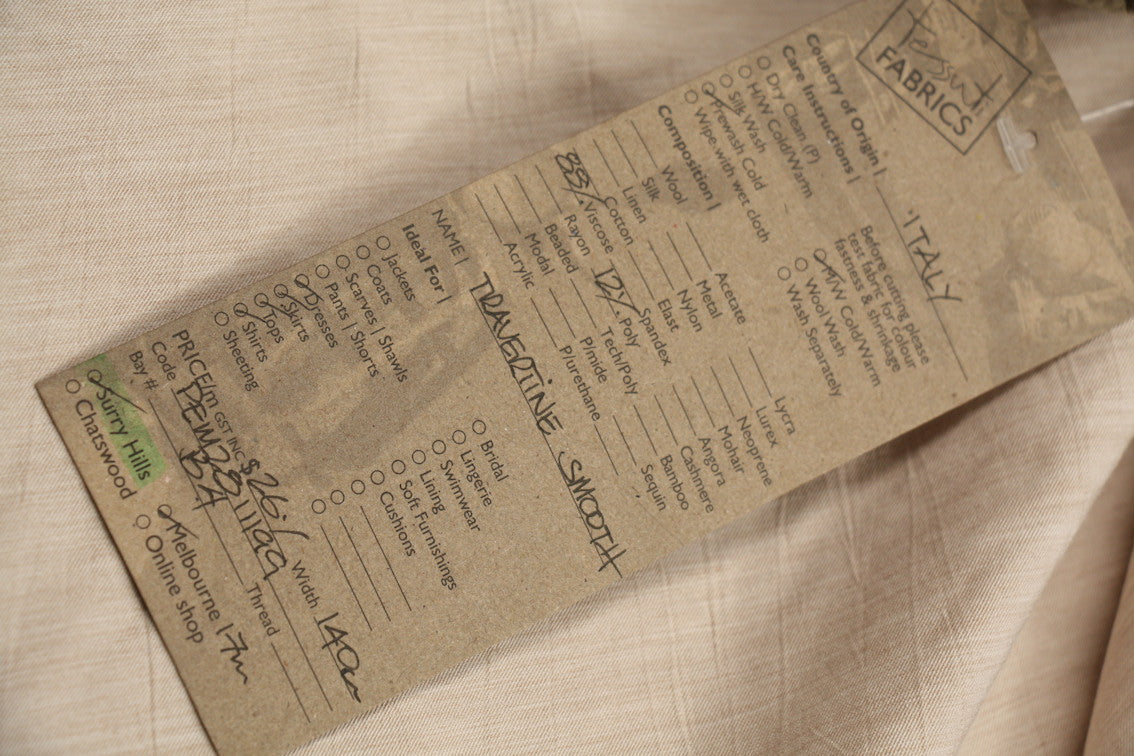 Tessuti
FABRICS
Country of Origin | ITALY
Care Instructions |
Dry Clean (P)
H/W Cold/Warm
Silk Wash
Prewash Cold
Wipe with wet cloth
Before cutting please
test fabric for colour
fastness & shrinkage
M/W Cold/Warm
Wool Wash
Wash Separately
Composition |
Wool
Silk
Linen
Cotton
88% Viscose
Rayon
Beaded
Modal
Acrylic
Acetate
Metal
Nylon
Elast
Spandex
12% Poly
Tech/Poly
P/mide
P/urethane
Lycra
Lurex
Neoprene
Mohair
Angora
Cashmere
Bamboo
Sequin
NAME | TRAVERTINE SMOOTH
Ideal For |
Jackets
Coats
Scarves | Shawls
Pants | Shorts
Dresses
Skirts
Tops
Shirts
Sheeting
Bridal
Lingerie
Swimwear
Lining
Soft Furnishings
Cushions
PRICE/m GST INC $26.1 Width 140cm
Code PEW3811199 Thread
Bay # B4
Surry Hills
Chatswood
Melbourne 17m
Online shop